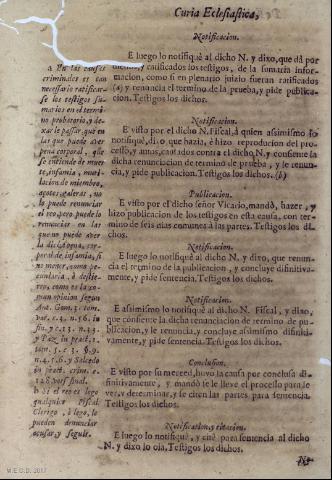 Curia Eclesiastica,
Notificacion.
E luego lo notifiquè al dicho N. y dixo, que dà por
dichos, y ratificados los testigos, de la sumaria infor-
macion, como si en plenario juizio fueran ratificados
(a) y renuncia el termino de la prueva, y pide publica-
cion. Testigos los dichos.
Notificacion.
E visto por el dicho N. Fiscal, à quien assimismo lo
notifiquè, dixo que hazia, è hizo reproducion del pro-
cesso, y autos, causados contra el dicho N. y consiente la
dicha renunciacion de termino de prueba, y le renun-
cia, y pide publicacion. Testigos los dichos. (b)
Publicacion.
E visto por el dicho señor Vicario, mandò, hazer, y
hizo publicacion de los testigos en esta causa, con ter-
mino de seis dias comunes à las partes. Testigos los di-
chos.
Notificacion.
E luego lo notifiquè al dicho N. y dixo, que renun-
cia el termino de la publicacion, y concluye difinitiva-
mente, y pide sentencia. Testigos los dichos.
Notificacion.
E assimismo lo notifiquè al dicho N. Fiscal, y dixo,
que consiente la dicha renunciacion de termino de pu-
blicacion, y le renuncia, y concluye assimismo difiniti-
vamente, y pide sentencia. Testigos los dichos.
Conclusion.
E visto por su merced, huvo la causa por conclusa di-
finitivamente, y mandò se le lleve el processo para le
ver, y determinar, y se citen las partes para sentencia.
Testigos los dichos.
Notificacion, y citacion.
E luego lo notifiquè, y citè para sentencia al dicho
N. y dixo lo oia. Testigos los dichos.
a En las causas
criminales es tan
necessario ratificar-
se los testigos su-
marios en el termi-
no probatorio, y de-
xarle passar, que en
las que puede aver
pena corporal, que
se entiende de muer-
te, infamia, muti-
lacion de miembro,
açotes, galeras, no
lo puede renunciar
el reo, pero puede lo
renunciar en las
que no puede aver
la dicha pena, cor-
poral, de infamia, si
no menor, como pe-
cuniaria, ò destie-
rro, como es la co-
mun opinion segun
Ant. Gom. 3. tom.
in pract. crim. c.
b si el reo es lego
qualquier Fiscal
Clerigo, ò lego, lo
pueden denunciar
acusar, y seguir.
M.E.C.D. 2017